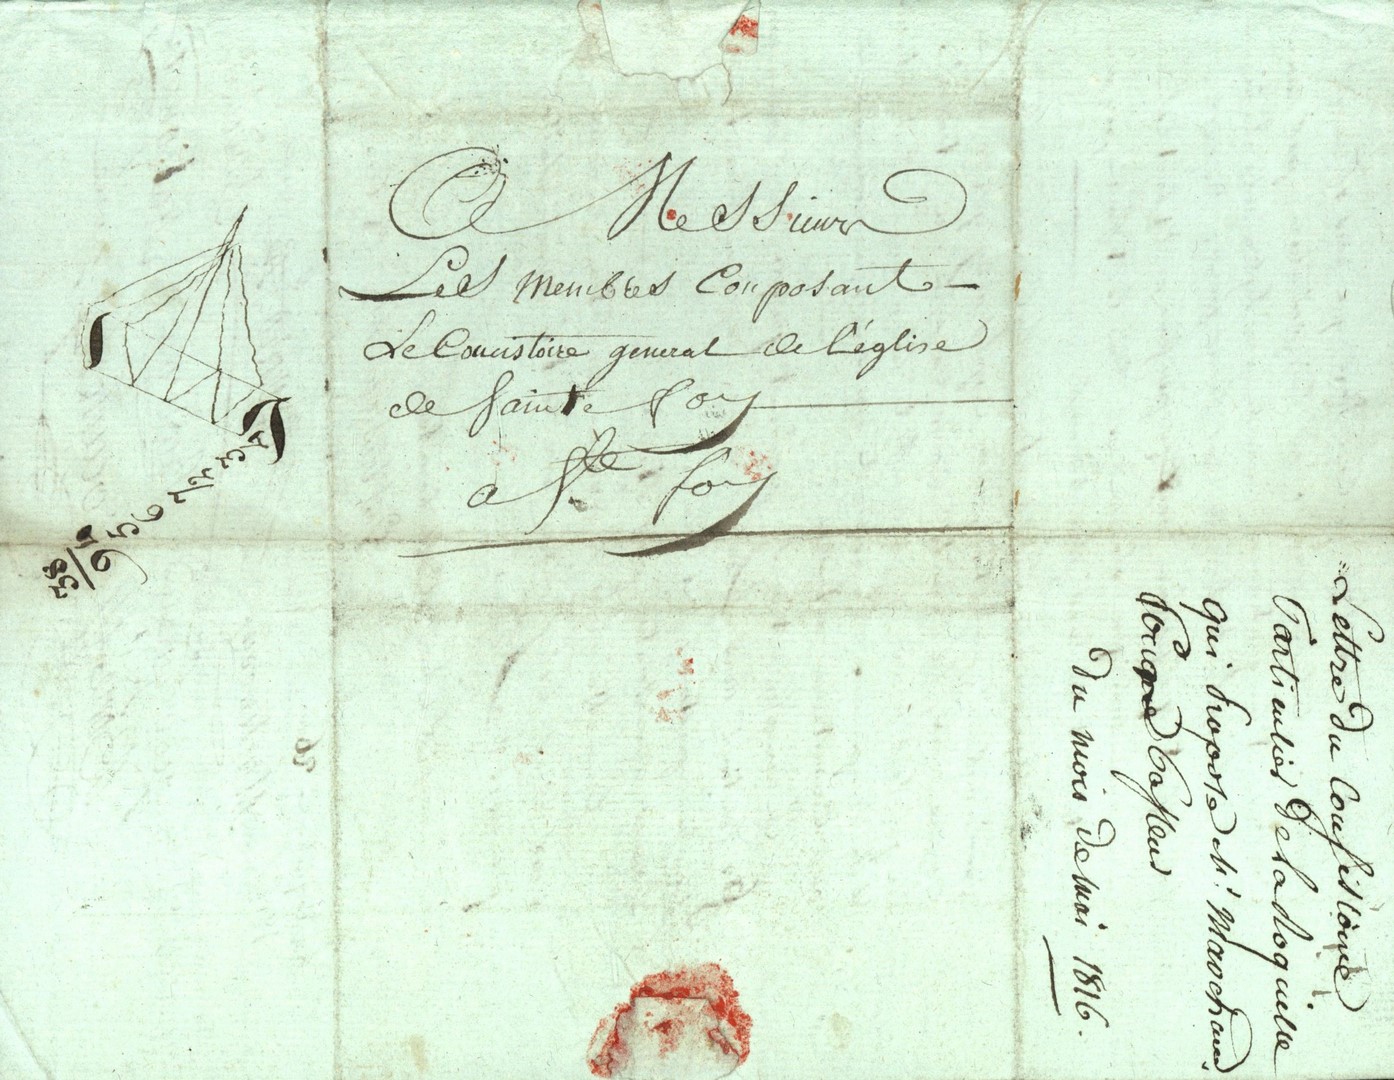 A Messieurs
Les membres Composant
Le Concistoire general de l'église
de Sainte foy
a Ste foy
Lettre du Consistoire
Particulier De la Roquille
qui propose Mr. Marchand
pour Pasteur
Du mois de mai 1816.